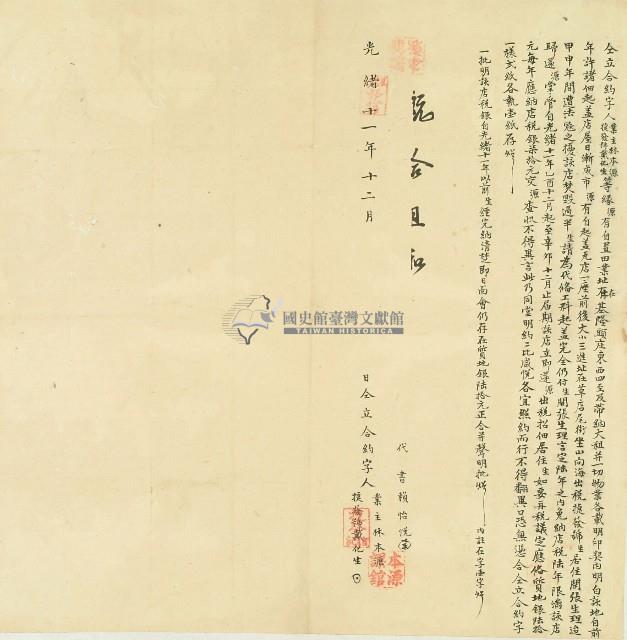 仝立合約字人業主林本源 復發號戴化生等緣源有自置田業址在基隆頭庄東西四至及帶納大租并一切物業各載明印契內明白該地自前
年許諸佃起盖店屋日漸成市源有自起盖瓦店一座前後大小三進址在草店尾街坐山向海出稅復發號生居住開張生理迨
甲申年間遭法寇之擾該店焚毀過半生請為代備工料起盖完全仍付生開張生理言定陸年之內免納店稅陸年限滿該店
歸還源掌管自光緒十一年乙酉十二月起至辛卯十二月止屆期該店立即還源出稅招佃居住生如要再稅議定應備質地銀陸拾
元每年應納店稅銀柒拾元交源查收不得異言此乃同堂明約二比咸悅各宜照約而行不得翻異口恐無憑合仝立合約字
一樣弍紙各執壹紙存炤
一批明該店稅銀自光緒十一年以前生經完納清楚即日面會仍存在質地銀陸拾元正合并聲明批炤
內註在字
代書賴怡悅
光緒十一年十二月 日仝立合約字人業主林本源
復發號戴化生
本源
國史館臺灣文獻館
TAIWAN HISTORICA